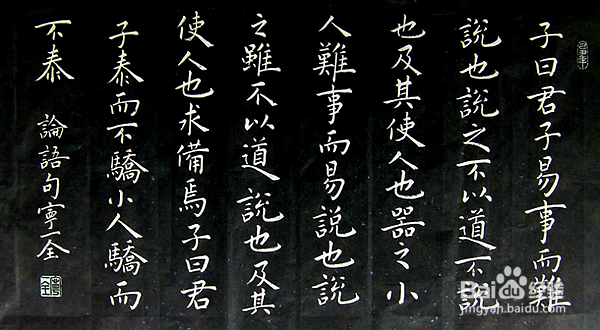 子曰君子易事而難
說也說之不以道不說
也及其使人也器之小
人難事而易說也說
之雖不以道說也及其
使人也求備焉子曰君
子泰而不驕小人驕而
不泰
論語句寧一全
Bai 百度 经验
jingyan.baidu.com